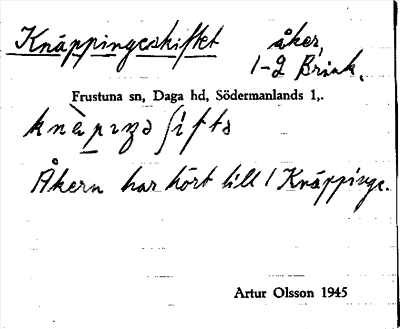 Knäppingeskiftet åker,
1-2 Brink.
Frustuna sn, Daga hd, Södermanlands l,.
Åkern har hört till 1 Knäppinge.
Artur Olsson 1945